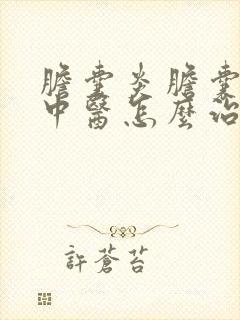 膽囊炎膽囊
中醫怎麼治
許蒼苔